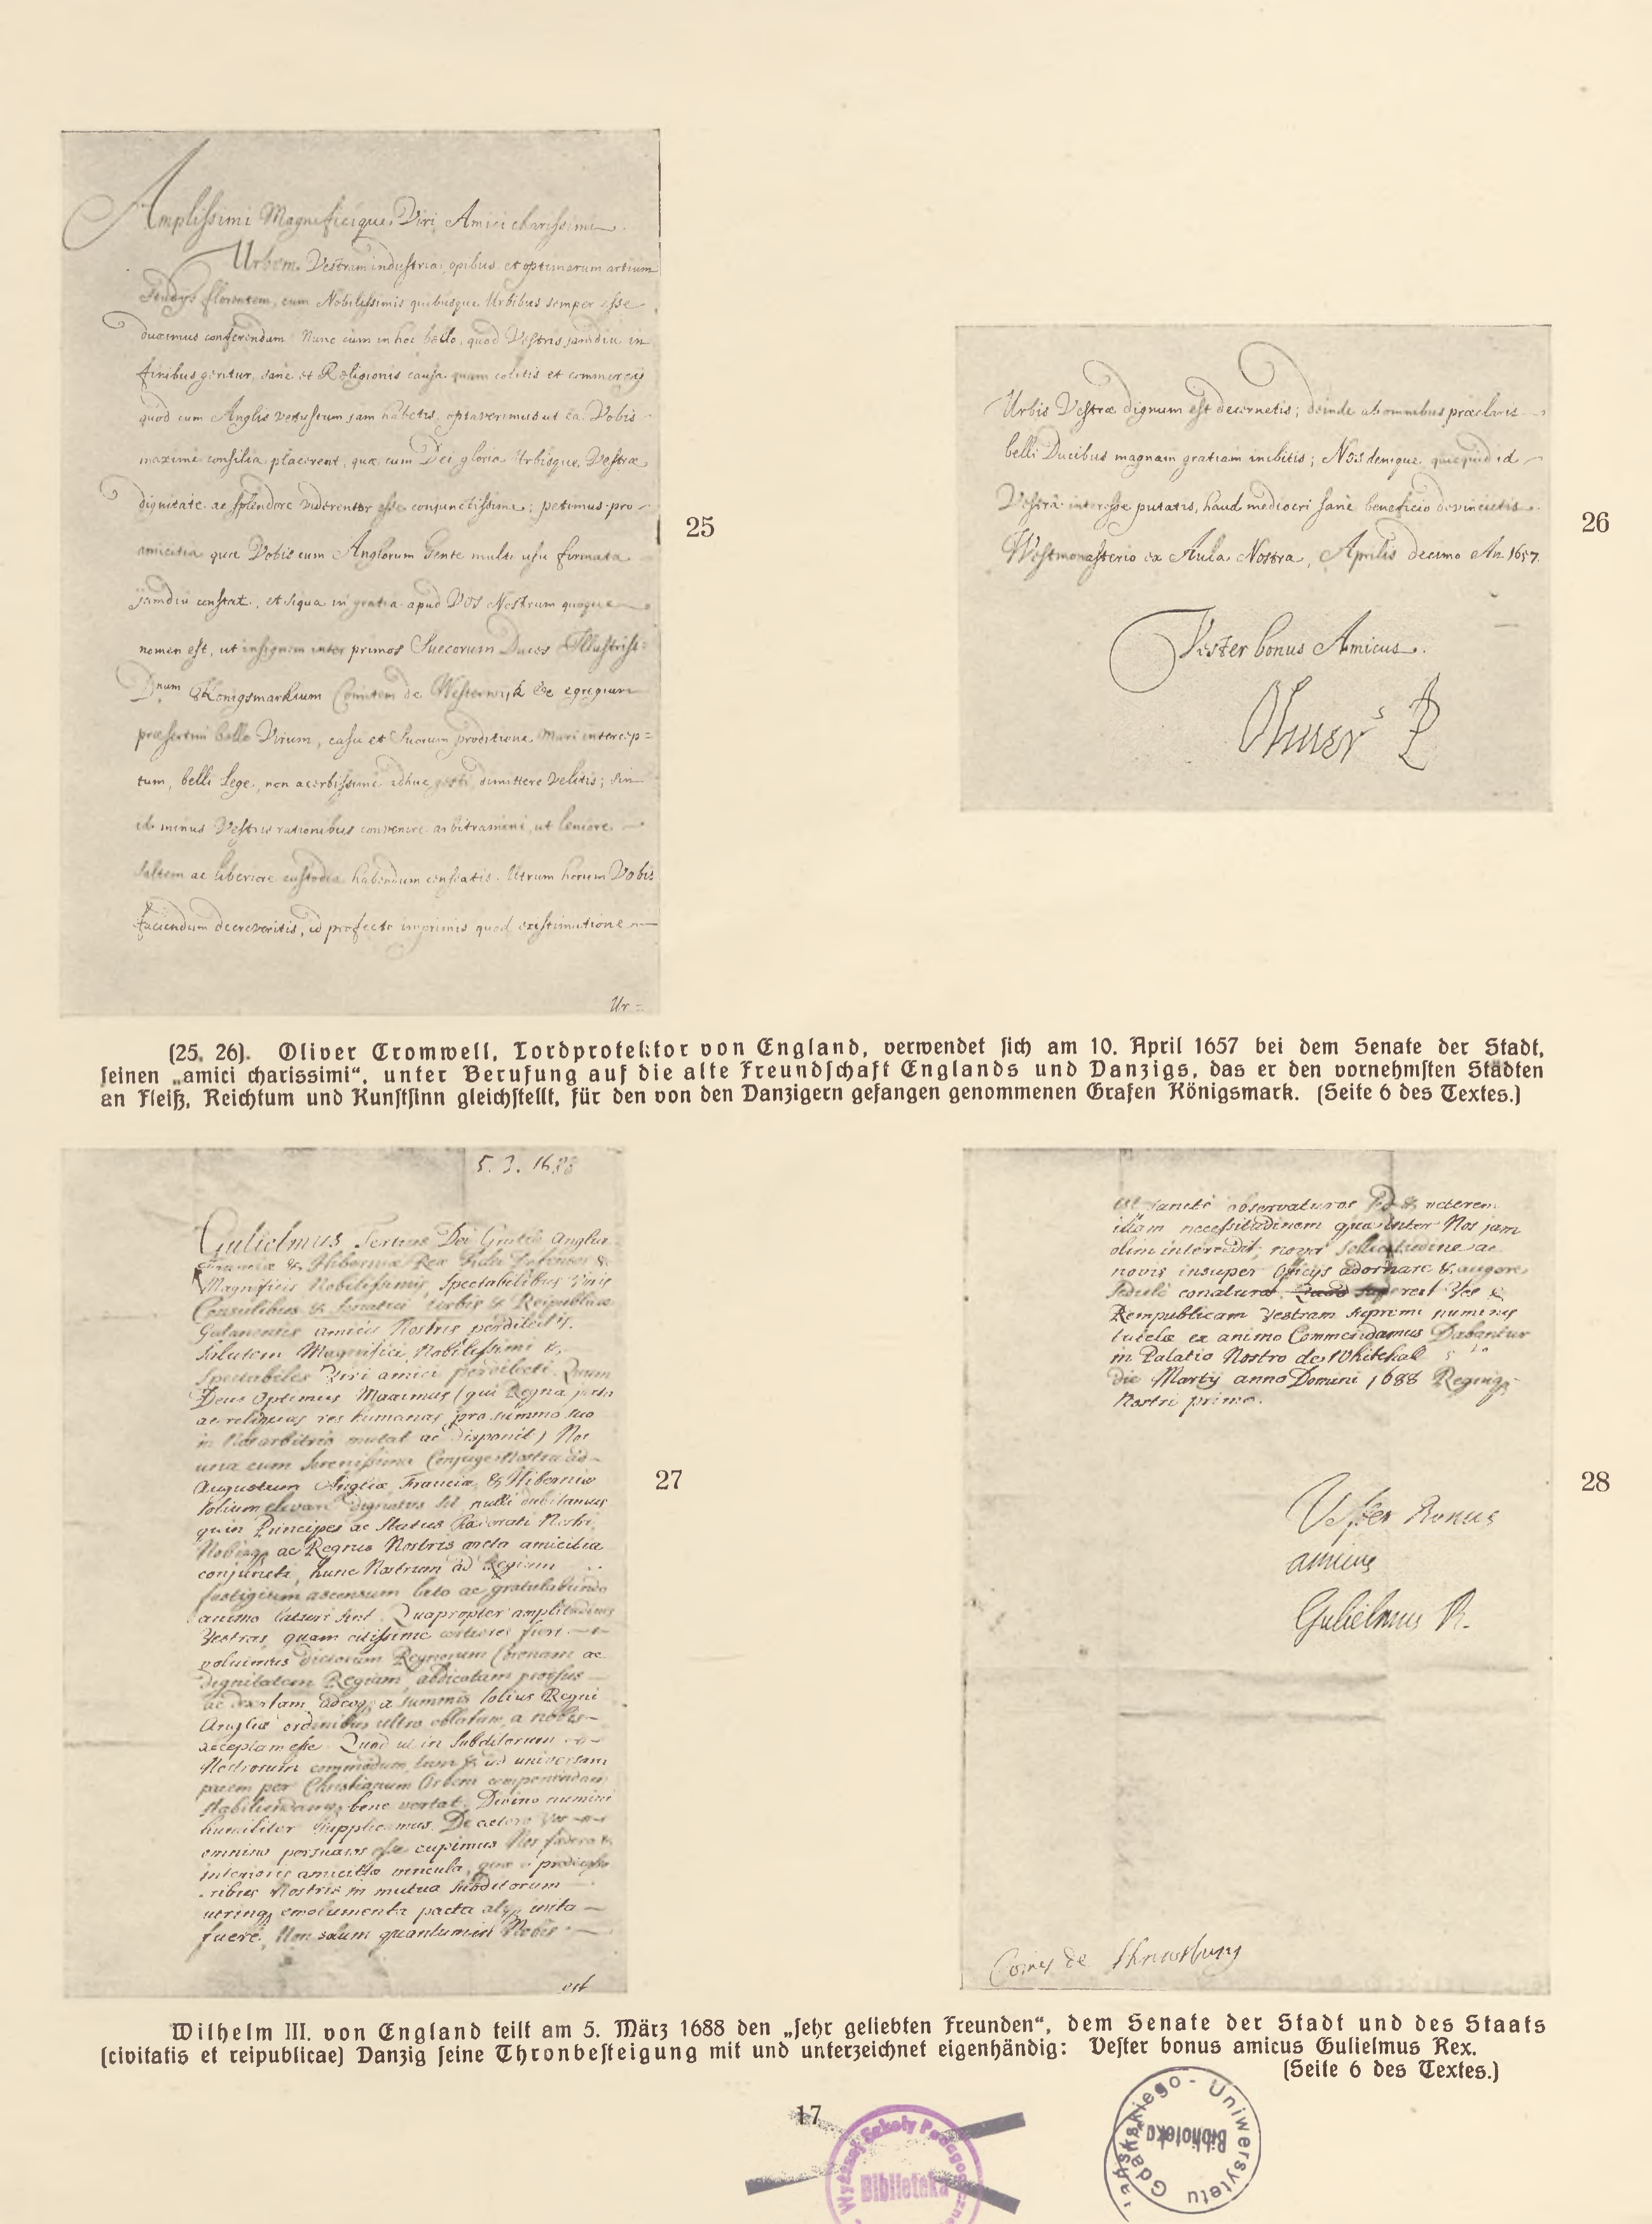 Amplissimi Magnificique Viri, Amici charissimi
Urbem Vestram industria, opibus et optimarum artium
Studys florentem, cum Nobilissimis quibusque Urbibus semper esse
duximus conferendam Nunc cum in hoc bello, quod Vestris jamdiu in
finibus geritur, sane et Religionis causa quam colitis et commercy
quod cum Anglis vetustum jam habetis, optaverimus ut ea Vobis
maxime consilia placerent, quæ cum Dei gloria Urbisque Vestræ
dignitate ac splendore viderentur esse conjunctissima; petimus pro
amicitia quæ Vobis cum Anglorum Gente multo usu firmata
jamdiu constat, et siqua in gratia apud Vos Nostrum quoque
nomen est, ut insignem inter primos Suecorum Duces Illustriss:
Dnum Konigsmarkium Comitem de Westerwyk &c egregium
præsertim bello Virum, casu et suorum proditione Mari intercep=
tum, belli lege, non acerbissime adhuc gesti, dimittere velitis; sin
id minus Vestris rationibus convenire arbitramini, ut leniore
saltem ac liberiore custodia habendum censeatis. Utrum horum Vobis
faciendum decreveritis, id profecto imprimis quod existimatione
Ur=
25
Urbis Vestræ dignum est decernetis; deinde ab omnibus præclaris
belli Ducibus magnam gratiam inibitis; Nos denique quicquid id
Vestrâ interesse putatis, haud mediocri sane beneficio devincietis.
Westmonasterio ex Aula Nostra, Aprilis decimo An 1657.
Vester bonus Amicus.
Oliver P
26
(25, 26). Oliver Cromwell, Lordprotektor von England, verwendet sich am 10. April 1657 bei dem Senate der Stadt,
seinen „amici charissimi“, unter Berufung auf die alte Freundschaft Englands und Danzigs, das er den vornehmsten Städten
an Fleiß, Reichtum und Kunstsinn gleichstellt, für den von den Danzigern gefangen genommenen Grafen Königsmark. (Seite 6 des Textes.)
5. 3. 1688
Gulielmus Tertius Dei Gratiâ Angliæ
Franciæ & Hiberniæ Rex Fidei Defensor &c
Magnificis Nobilissimis, Spectabilibus Viris
Consulibus & Senatui Urbis & Reipublicæ
Gedanensis amicis Nostris perdilectis.
Salutem Magnifici Nobilissimi &
Spectabiles Viri amici perdilecti. Quum
Deus Optimus Maximus (qui Regna
ac reliquas res humanas pro summo suo
in arbitrio mutat ac disponit) Nos
una cum Serenissima Conjuge Nostra ad
Augustum Angliæ, Franciæ, & Hiberniæ
Solium dignatus sit, nulli dubitamus
quin Principes ac Status Nostri
Nobisq ac Regnis Nostris arcta amicitia
conjuncti, hunc Nostrum ad Regium
fastigium ascensum læto ac gratulabundo
animo laturi sint. Quapropter amplitudines
Vestras, quam citissime certiores fieri
voluimus dictorum Regnorum Coronam ac
dignitatem Regiam, abdicatam prorsus
ac desertam, adeoq a summis totius Regni
Angliæ ordinibus ultro oblatam, a nobis
acceptam esse. Quod ut in Subditorum
Nostrorum commodum, tum & ad universam
pacem per Christianum Orbem componendam
stabiliendamq bene vertat. Divino numini
humiliter supplicamus. De cætero Vos
omnino persuasos esse cupimus Nos fœdera &
interioris amicitiæ vincula, quæ a prædeces
soribus Nostris in mutua Subditorum
utrinq emolumenta pacta inita
fuere, Non solum quantum in Nobis
est
27
est sancte observaturos sed & veterem
illam necessitudinem quæ inter Nos jam
olim intercedit, nova sollicitudine ac
novis insuper officys adornare & augere
sedulo conaturos. Quod superest Vos &
Rempublicam Vestram supremi numinis
tutelæ ex animo Commendamus Dabantur
in Palatio Nostro de Whitehal 5to
die Martij anno Domini 1688 Regniq
Nostri primo.
Vester Bonus
amicus
Gulielmus R.
Comes de Shrewsbury
28
Wilhelm III. von England teilt am 5. März 1688 den „sehr geliebten Freunden“, dem Senate der Stadt und des Staats
(civitatis et reipublicae) Danzig seine Thronbesteigung mit und unterzeichnet eigenhändig: Vester bonus amicus Gulielmus Rex.
(Seite 6 des Textes.)
17
Wyższej Szkoły Pedagogicznej
Biblioteka
Uniwersytetu Gdańskiego
Biblioteka